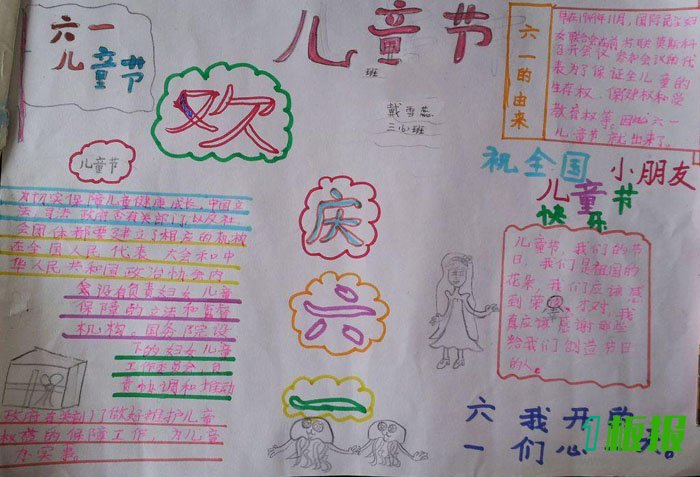 六一
儿童节
儿童节
班
欢
庆
六
一
戴雪蕊
三(6)班
六一的由来
早在1949年11月,国际民主妇
女联合会在前苏联莫斯科
召开会议,参加会议的代
表为了保证全儿童的
生存权、保健权和受
教育权等。因此六一
儿童节就出来了。
祝全国小朋友
儿童节
快乐
儿童节
为切实保障儿童健康成长,中国立
法、司法、政府各有关部门,以及社
会团体都要建立了相应的机械
在全国人民代表大会和中
华人民共和国政治协会内
会设有负责妇女儿童
保障的立法和监督
机构。国务院设
下的妇女儿童
工作委员会,负
责协调和推动
政府在实制了做好维护儿童
权益的保障工作,为儿童
办实事。
儿童节,我们的节
日。我们是祖国的
花朵,我们应该感
到荣才对。我
真应该感谢那些
给我们创造节日
的人。
六一
我们开心
。
1板报